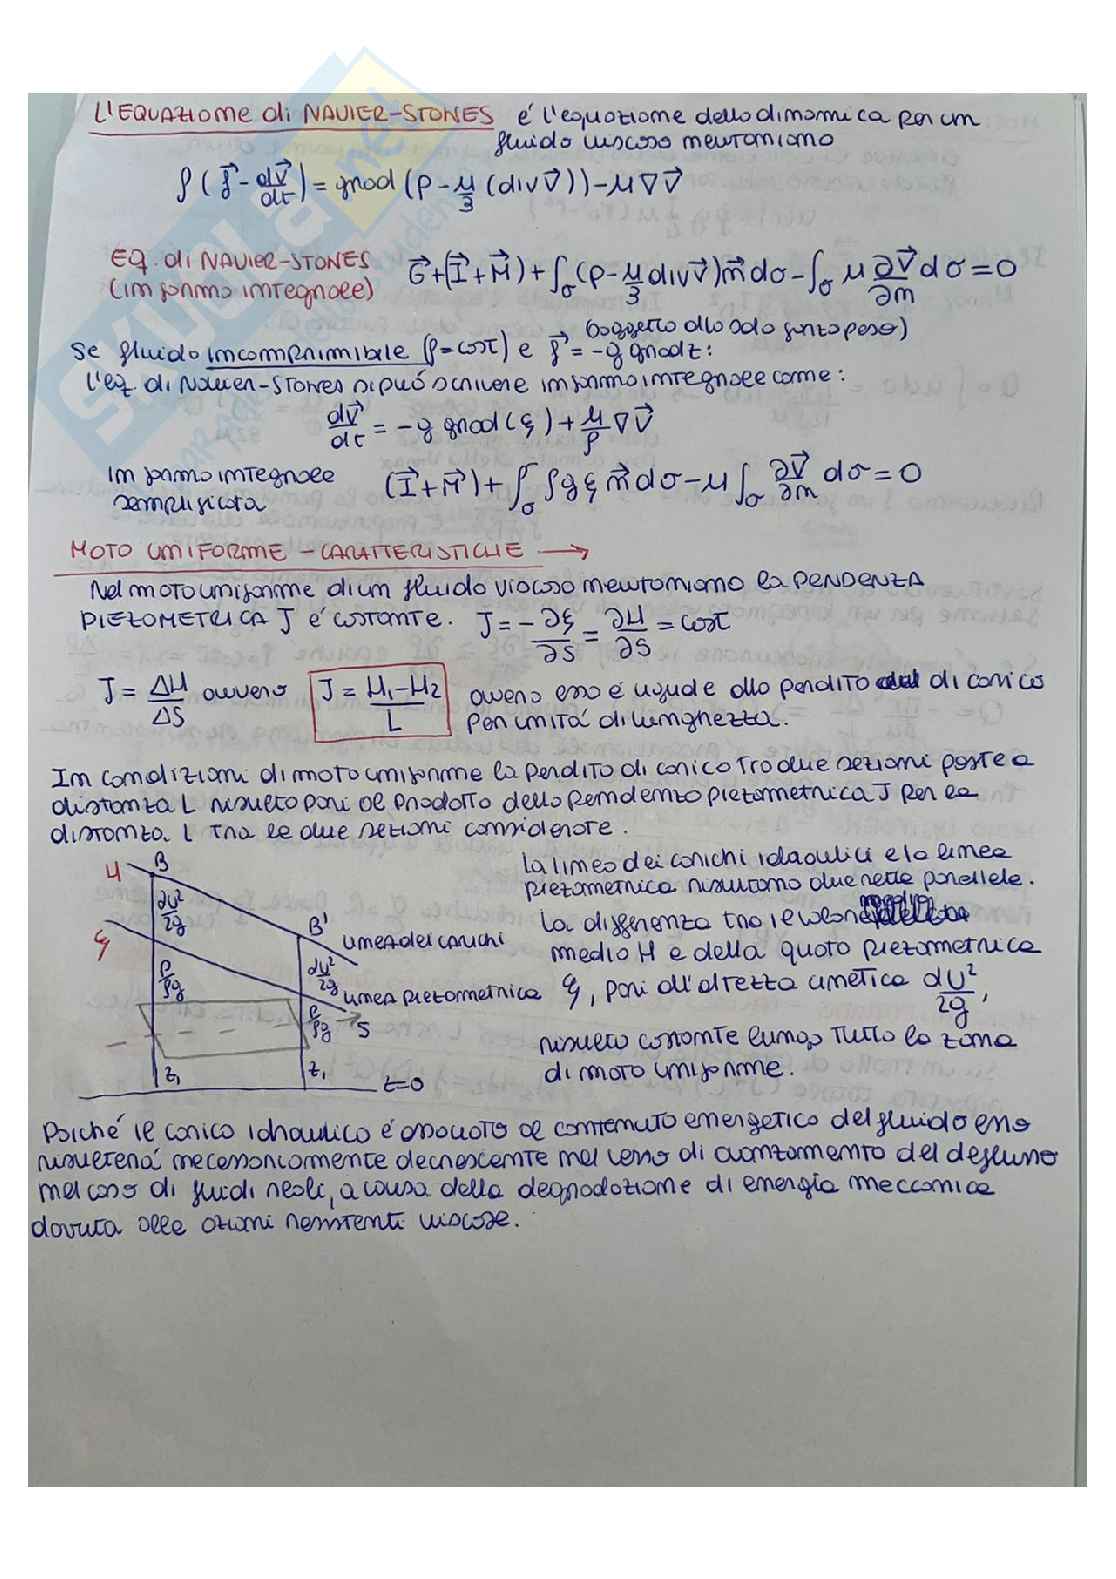 L'EQUAZIONE di NAVIER-STONES é l'equazione della dinamica per un
fluido viscoso newtoniano
ρ(f⃗ - dV⃗/dt) = grad(p - μ/3 (div V⃗)) - μ∇V⃗
EQ. di NAVIER-STONES
(in forma integrale)
G⃗+(I⃗+M⃗)+∫σ(p-μ/3 div V⃗)n⃗ dσ-∫σ μ ∂V⃗/∂n dσ=0
(soggetto alla sola forza peso)
Se fluido incomprimibile (ρ=cost) e f⃗=-g grad z:
l'eq. di Navier-Stones si può scrivere in forma integrale come:
dV⃗/dt = -g grad(ξ) + μ/ρ ∇V⃗
In forma integrale
semplificata
(I⃗+M⃗)+∫σ ρgξ n⃗ dσ-μ∫σ ∂V⃗/∂n dσ=0
MOTO UNIFORME - CARATTERISTICHE →
Nel moto uniforme di un fluido viscoso newtoniano la PENDENZA
PIEZOMETRICA J é costante. J=-∂ξ/∂S=∂H/∂S=cost
J=ΔH/ΔS ovvero J=H1-H2/L ovvero esso é uguale alla perdita di carico
per unità di lunghezza.
In condizioni di moto uniforme la perdita di carico tra due sezioni poste a
distanza L risulta pari al prodotto della pendenza piezometrica J per la
distanza L tra le due sezioni considerate.
La linea dei carichi idraulici e la linea
piezometrica risultano due rette parallele.
La differenza tra il valore
medio H e della quota piezometrica
ξ, pari all'altezza cinetica αU²/2g,
risulta costante lungo tutta la zona
di moto uniforme.
H
B
αU²/2g
B'
linea dei carichi
ξ
p/ρg
αU²/2g
linea piezometrica
p/ρg
S
z1
z1
z=0
Poiché il carico idraulico é associato al contenuto energetico del fluido esso
risulterà necessariamente decrescente nel verso di avanzamento del deflusso
nel caso di fluidi reali, a causa della degradazione di energia meccanica
dovuta alle azioni resistenti viscose.